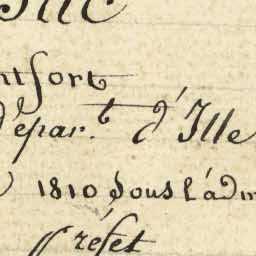 ntfort
Dépar.t d'Ille
1810 sous l'adm
Préfet